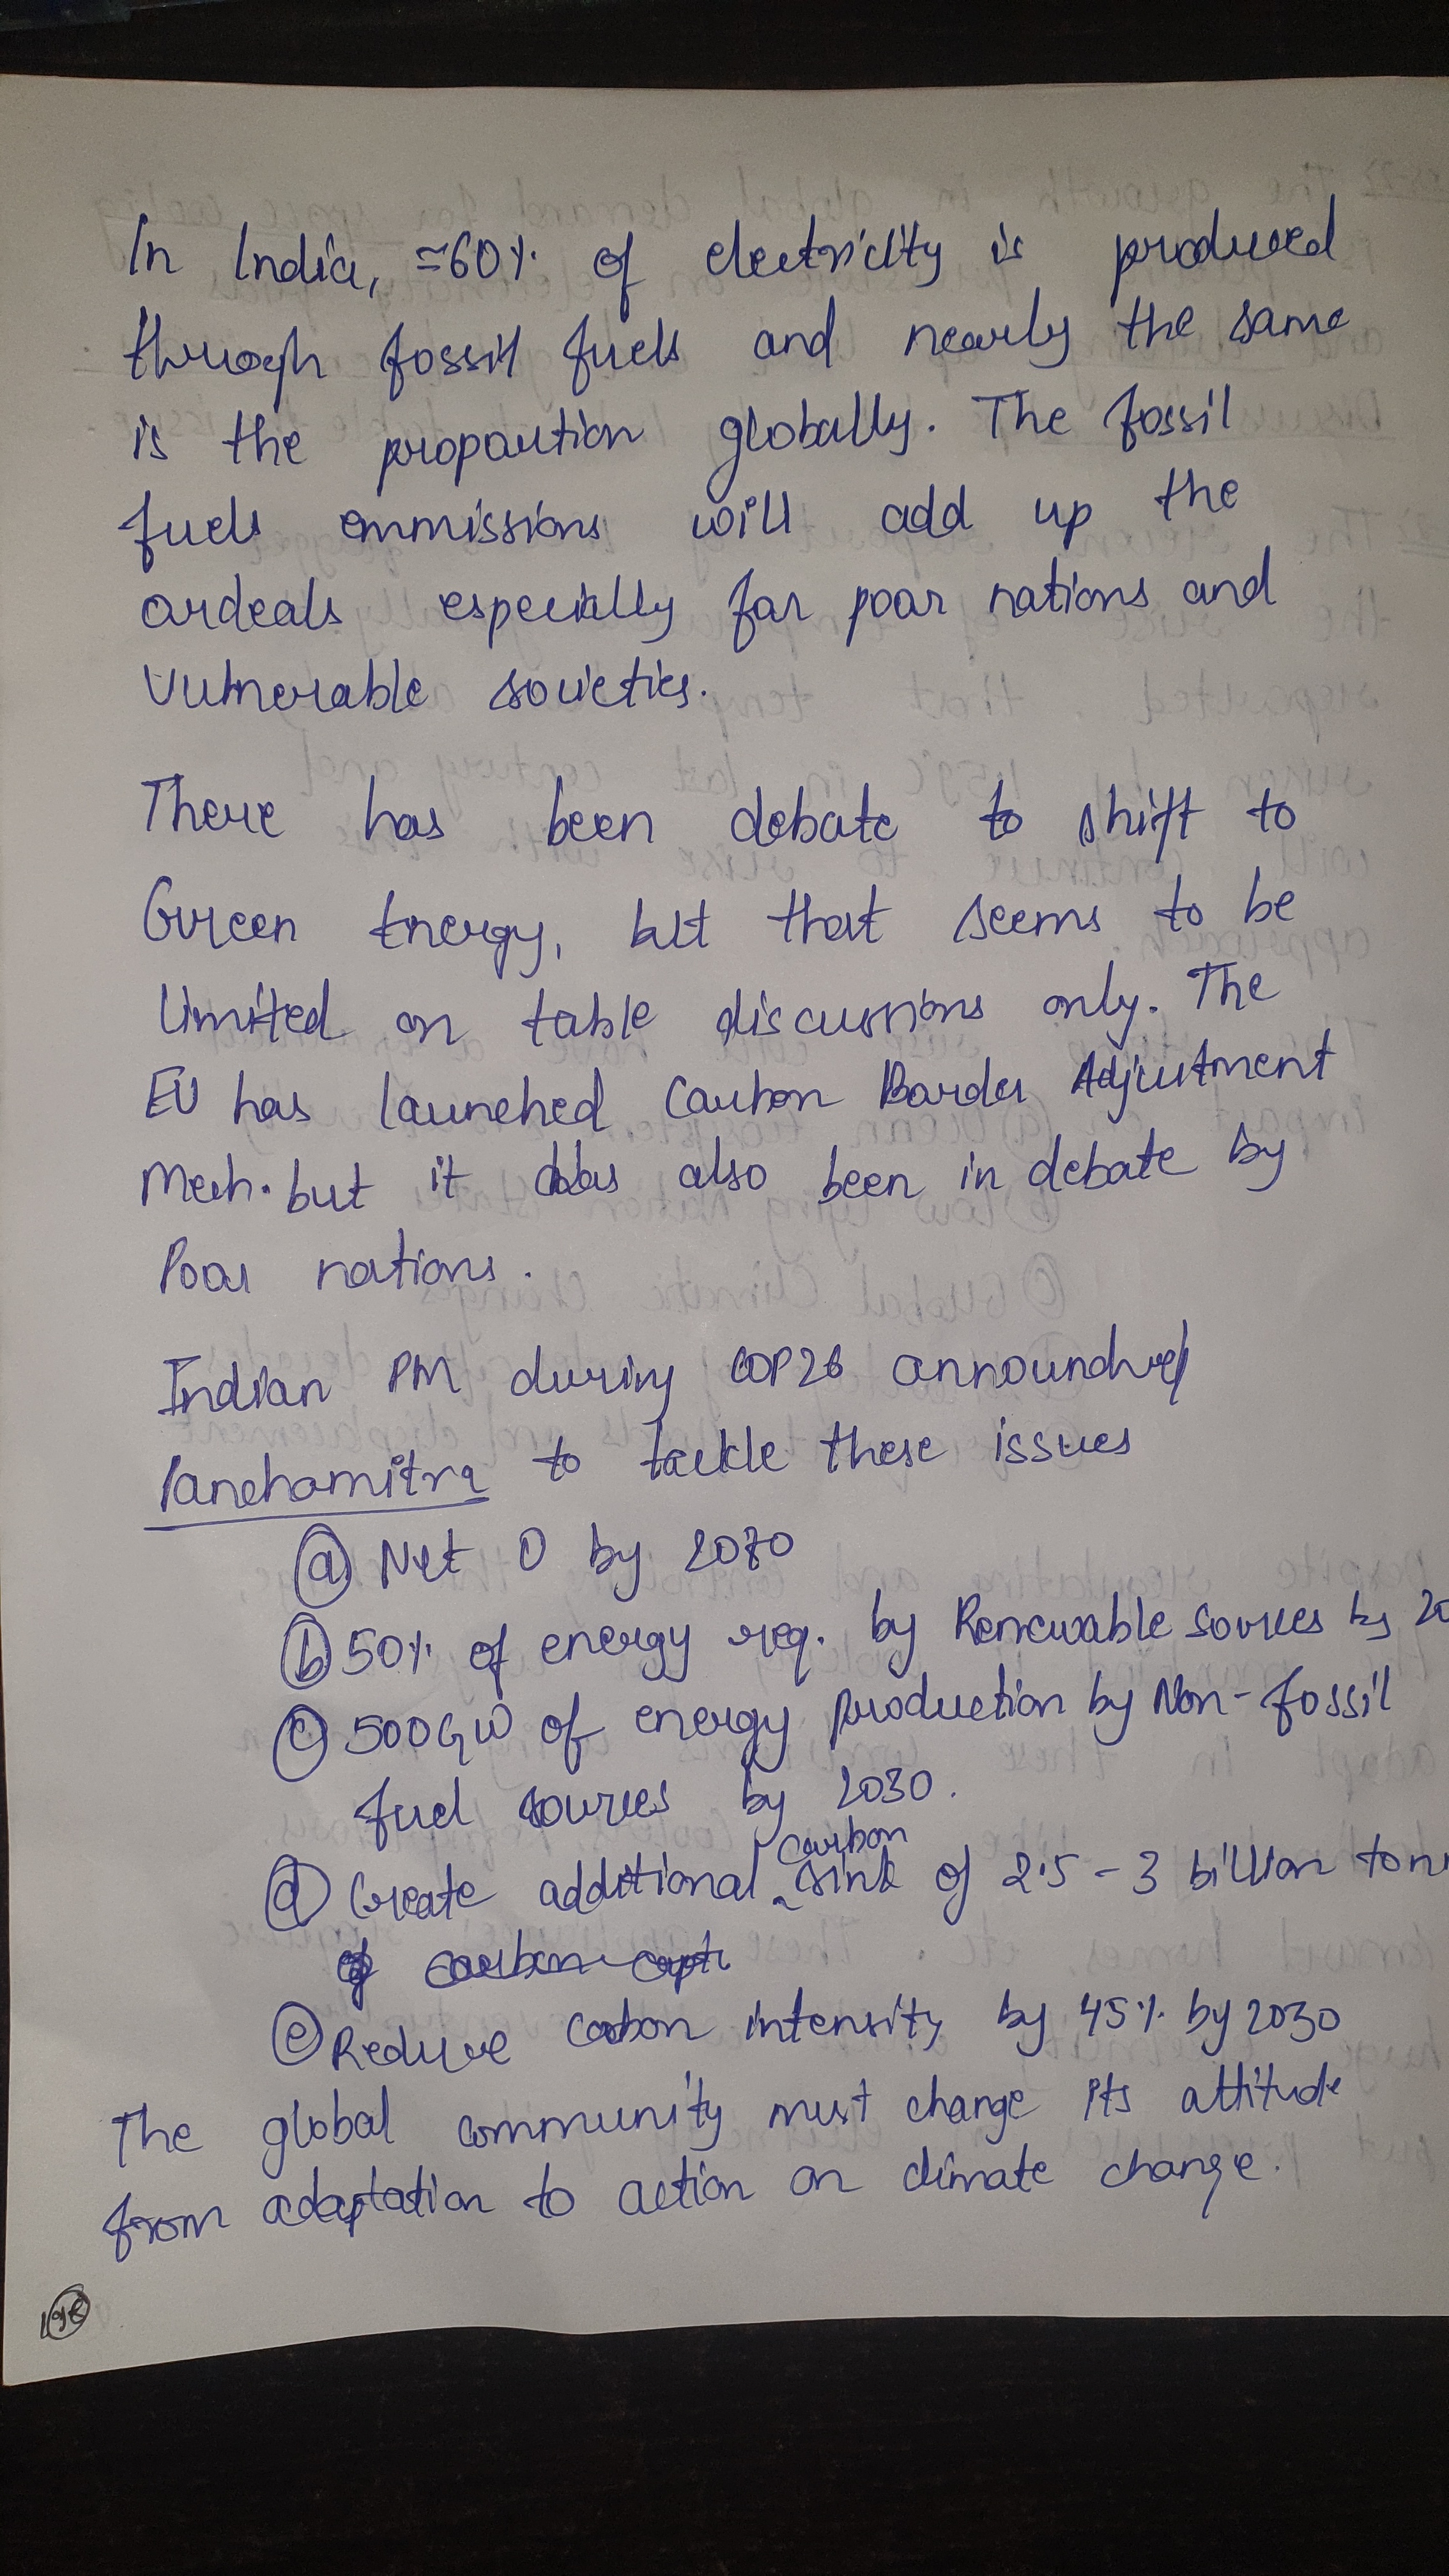 In India, ≈60% of electricity is produced
through fossil fuels and nearly the same
is the proportion globally. The fossil
fuels emmissions will add up the
ordeals especially for poor nations and
vulnerable societies.
There has been debate to shift to
Green Energy, but that seems to be
limited on table discussions only. The
EU has launched Carbon Border Adjustment
Mech. but it has also been in debate by
Poor nations.
Indian PM during COP26 announced
Panchamitra to tackle these issues
(a) Net 0 by 2070
(b) 50% of energy req. by Renewable sources by 20
(c) 500GW of energy production by Non-fossil
fuel sources by 2030.
(d) Create additional carbon sink of 2.5-3 billion
(e) Reduce carbon intensity by 45% by 2030
The global community must change its attitude
from adaptation to action on climate change.